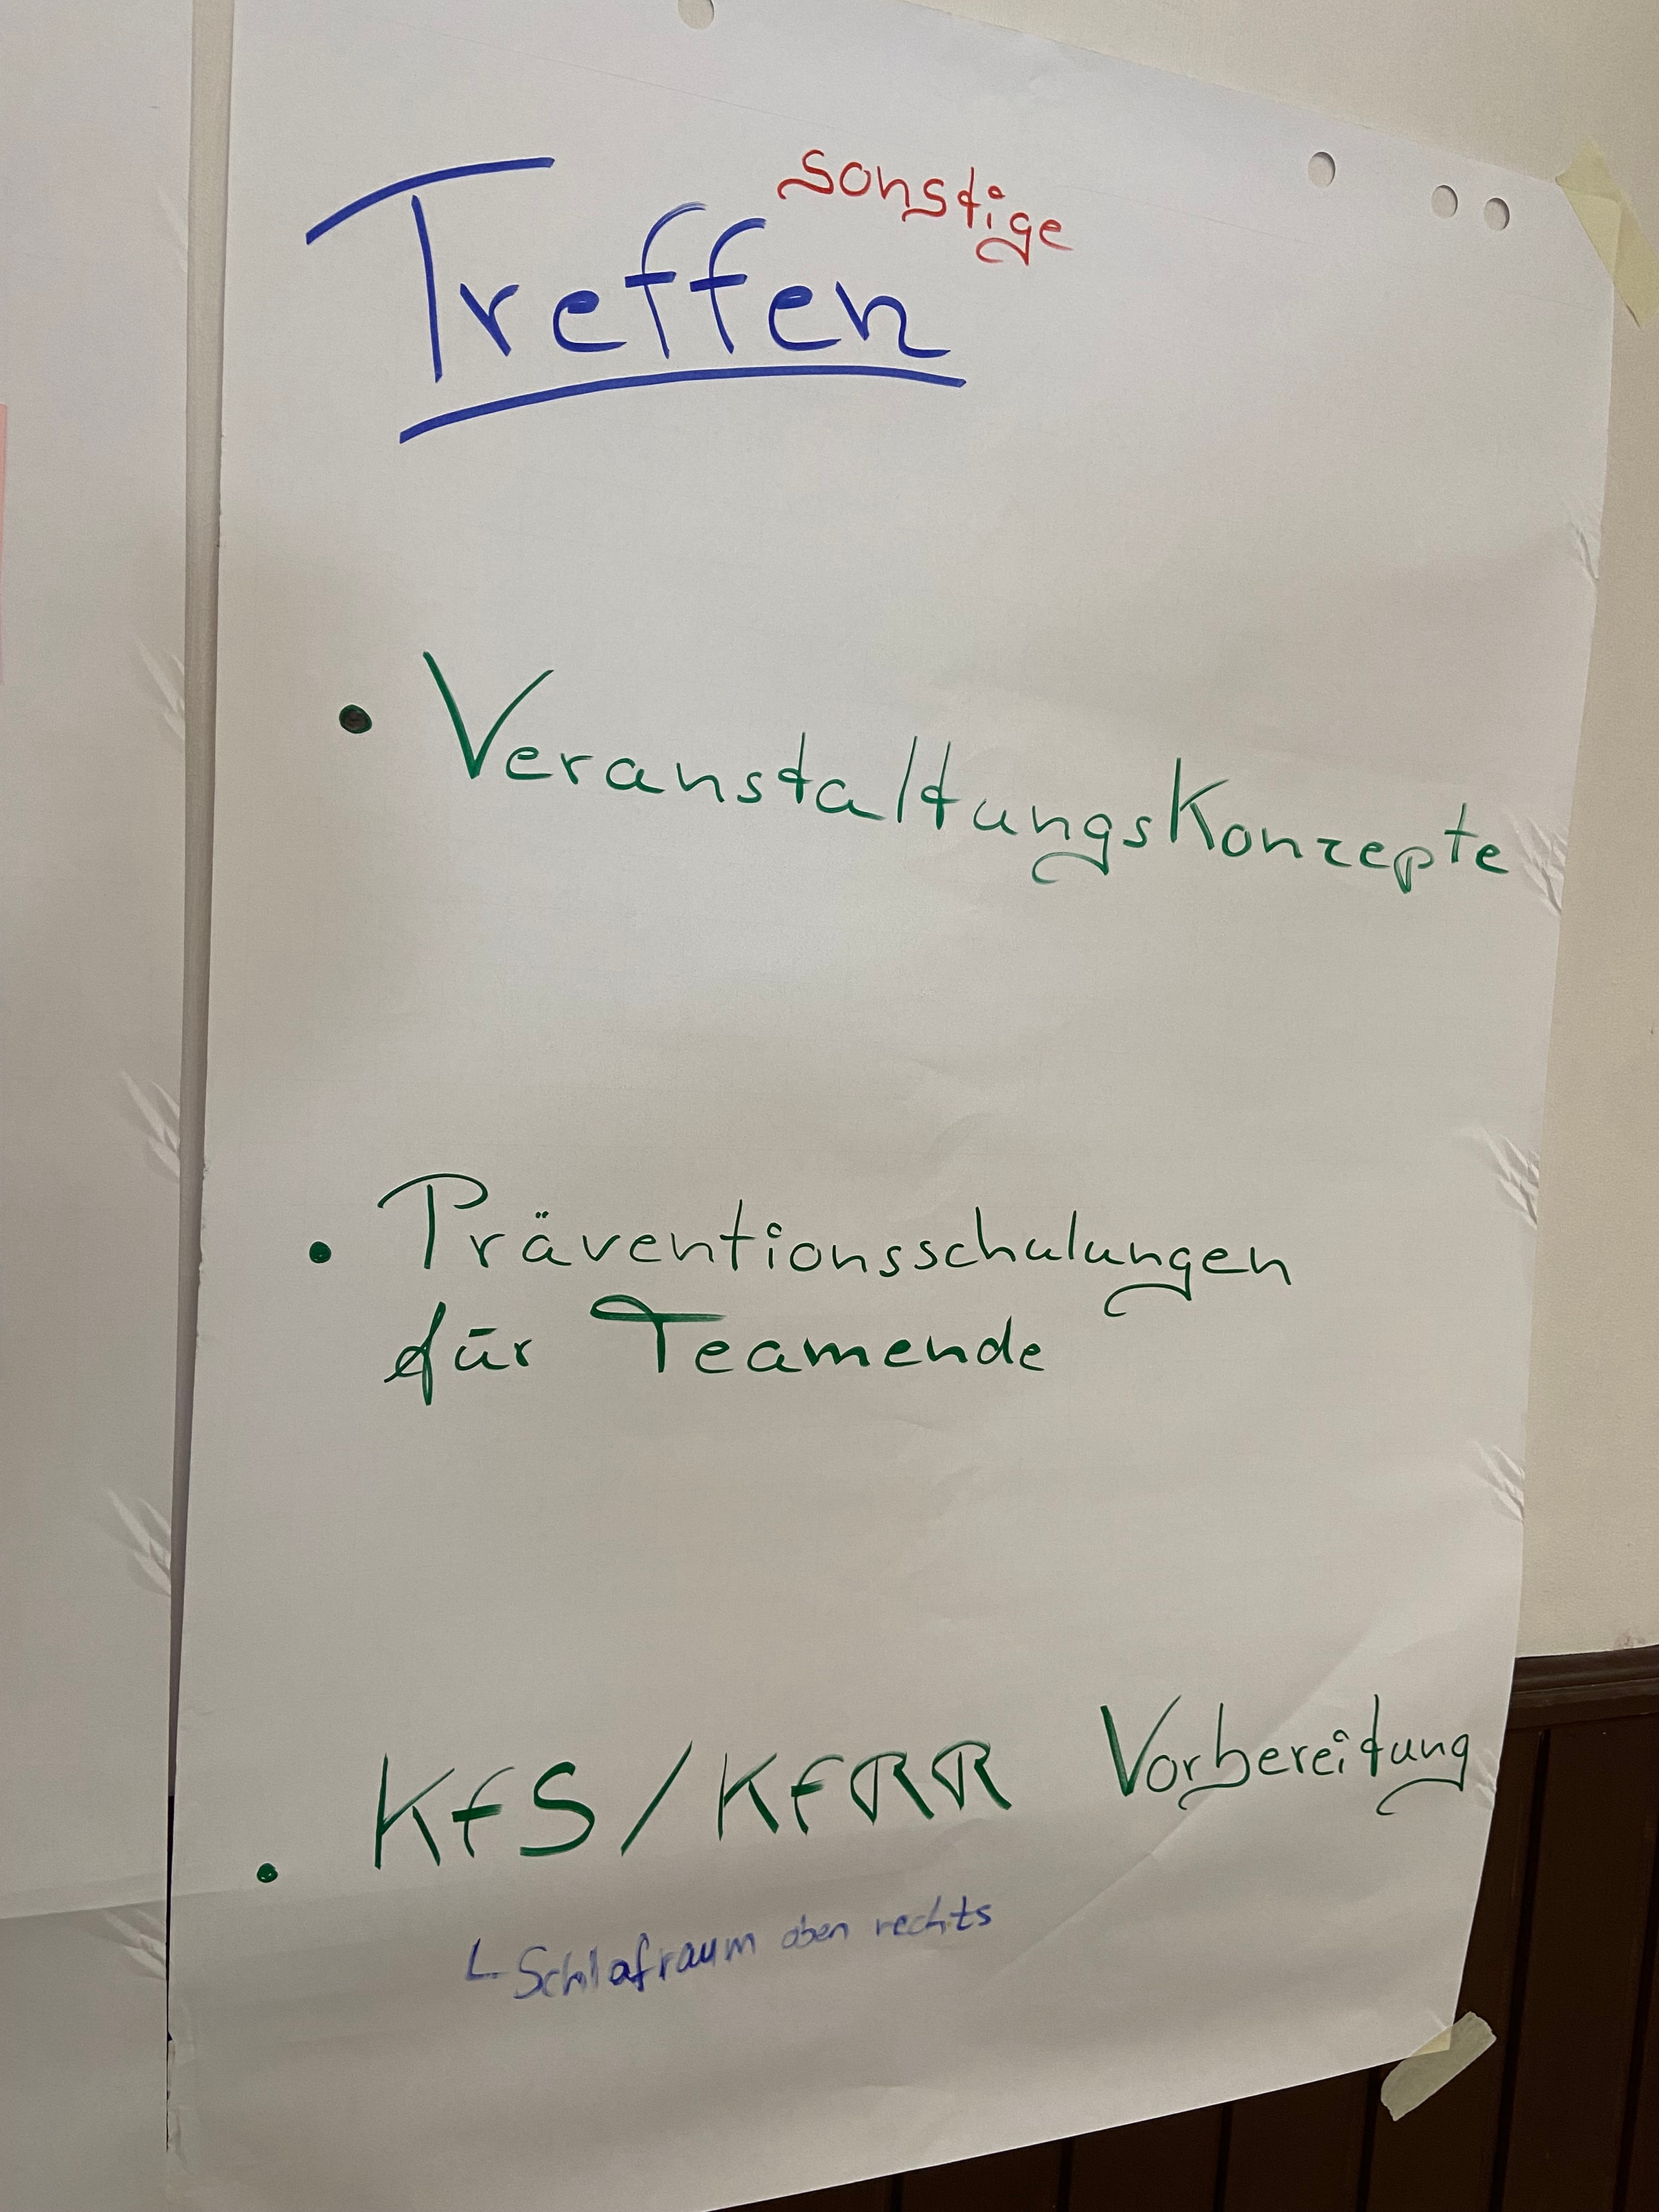 sonstige
Treffen
• Veranstaltungskonzepte
• Präventionsschulungen
für Teamende
• KfS/KfRR Vorbereitung
└ Schlafraum oben rechts